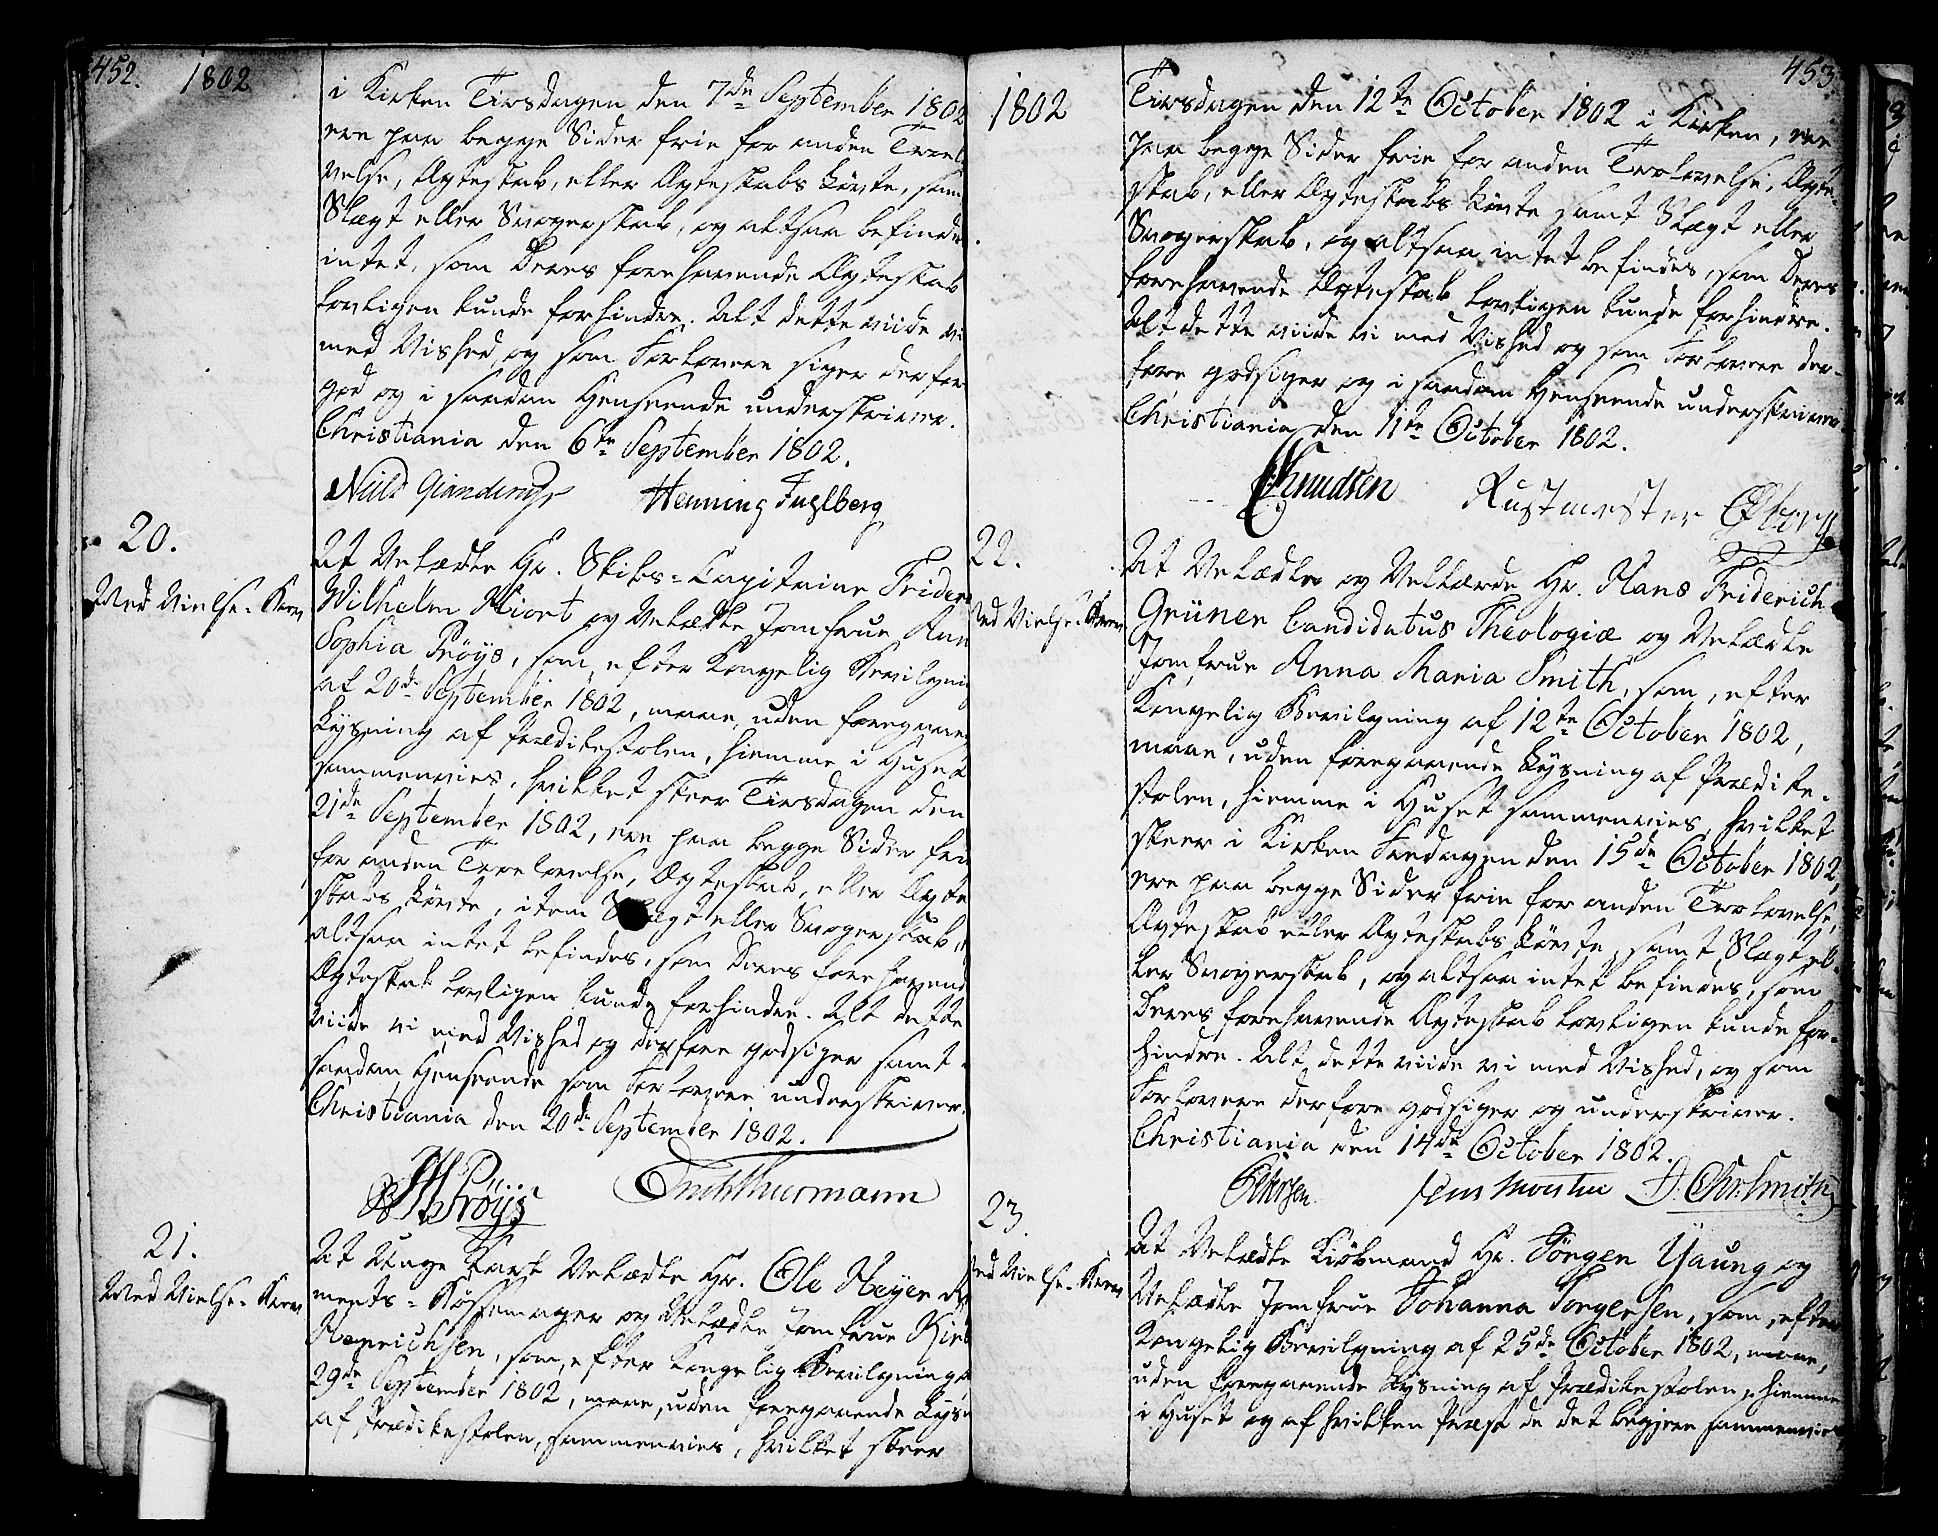 452. 1802
i Kirken Tirsdagen den 7de September 1802
ere paa begge Sider frie for anden Troelo
velse, Ægteskab, eller Ægteskabs Løvte, samt
Slægt eller Svogerskab, og altsaa befindes
intet, som Deres forehavende Ægteskab
lovligen kunde forhindre. Alt dette viide vi
med Vished, og som Forlovere siger derfor
god og i saadan Henseende underskriver.
Christiania den 6te September 1802.
Niels Henning Fuglberg
20.
Med Vielse-Brev
At Velædle Hr. Skibs-Capitaine Frider
Wilhelm Hiort og Velædle Jomfrue Ann
Sophia Prøys, som, efter Kongelig Bevilgning
af 20de September 1802, maae, uden foregaaen
Lysning af Prædikestolen, hiemme i Huset
sammenvies, hvilket skeer Tirsdagen den
21de September 1802, ere paa begge Sider frie
for anden Troelovelse, Ægteskab, eller Ægte
skabs Løvte, item Slægt eller Svogerskab,
altsaa intet befindes, som Deres forehavend
Ægteskab lovligen kunde forhindre. Alt dette
viide vi med Vished og derfore godsiger samt
saadan Henseende som Forlovere underskriver.
Christiania den 20de September 1802.
Prøys Thurmann
21.
Med Vielse-Brev
At Unge Karl Velædle Hr. Ole Heyer
ments-Bøssemager og Velædle Jomfrue
Henrichsen, som, efter Kongelig Bevilgning
29de September 1802, maae, uden foregaaende Lysn
af Prædikestolen, sammenvies, hvilket skeer
453
1802
Tirsdagen den 12te October 1802 i Kirken, ere
paa begge Sider frie for anden Trolovelse, Ægte-
skab, eller Ægteskabs Løvte samt Slægt eller
Svogerskab, og altsaa intet befindes, som Deres
forehavende Ægteskab lovligen kunde forhindre.
Alt dette viide vi med Vished og som Forlovere der-
fore godsiger og i saadan Henseende underskriver
Christiania den 11te October 1802.
Knudsen Rustmester
22.
Med Vielse-Brev
At Velædle og Vellærde Hr. Hans Friderich
Grüner Candidatus Theologiæ og Velædle
Jomfrue Anna Maria Smith, som, efter
Kongelig Bevilgning af 12te October 1802,
maae, uden foregaaende Lysning af Prædike-
stolen, hiemme i Huset sammenvies, hvilket
skeer i Kirken Fredagen den 15de October 1802,
ere paa begge Sider frie for anden Trolovelse,
Ægteskab eller Ægteskabs Løvte, samt Slægt el-
ler Svogerskab, og altsaa intet befindes, som
Deres forehavende Ægteskab lovligen kunde for-
hindre. Alt dette viide vi med Vished, og som
Forlovere derfore godsiger og underskriver.
Christiania den 14de October 1802.
Petersen Jens Moestue Chr. Smith
23.
Med Vielse-Brev
At Velædle Kiøbmand Hr. Jørgen Young og
Velædle Jomfrue Johanna Jørgensen, som, efter
Kongelig Bevilgning af 25de October 1802, maae,
uden foregaaende Lysning af Prædikestolen, hiemme
i Huset og af hvilken Præst de det begjere sammenvies